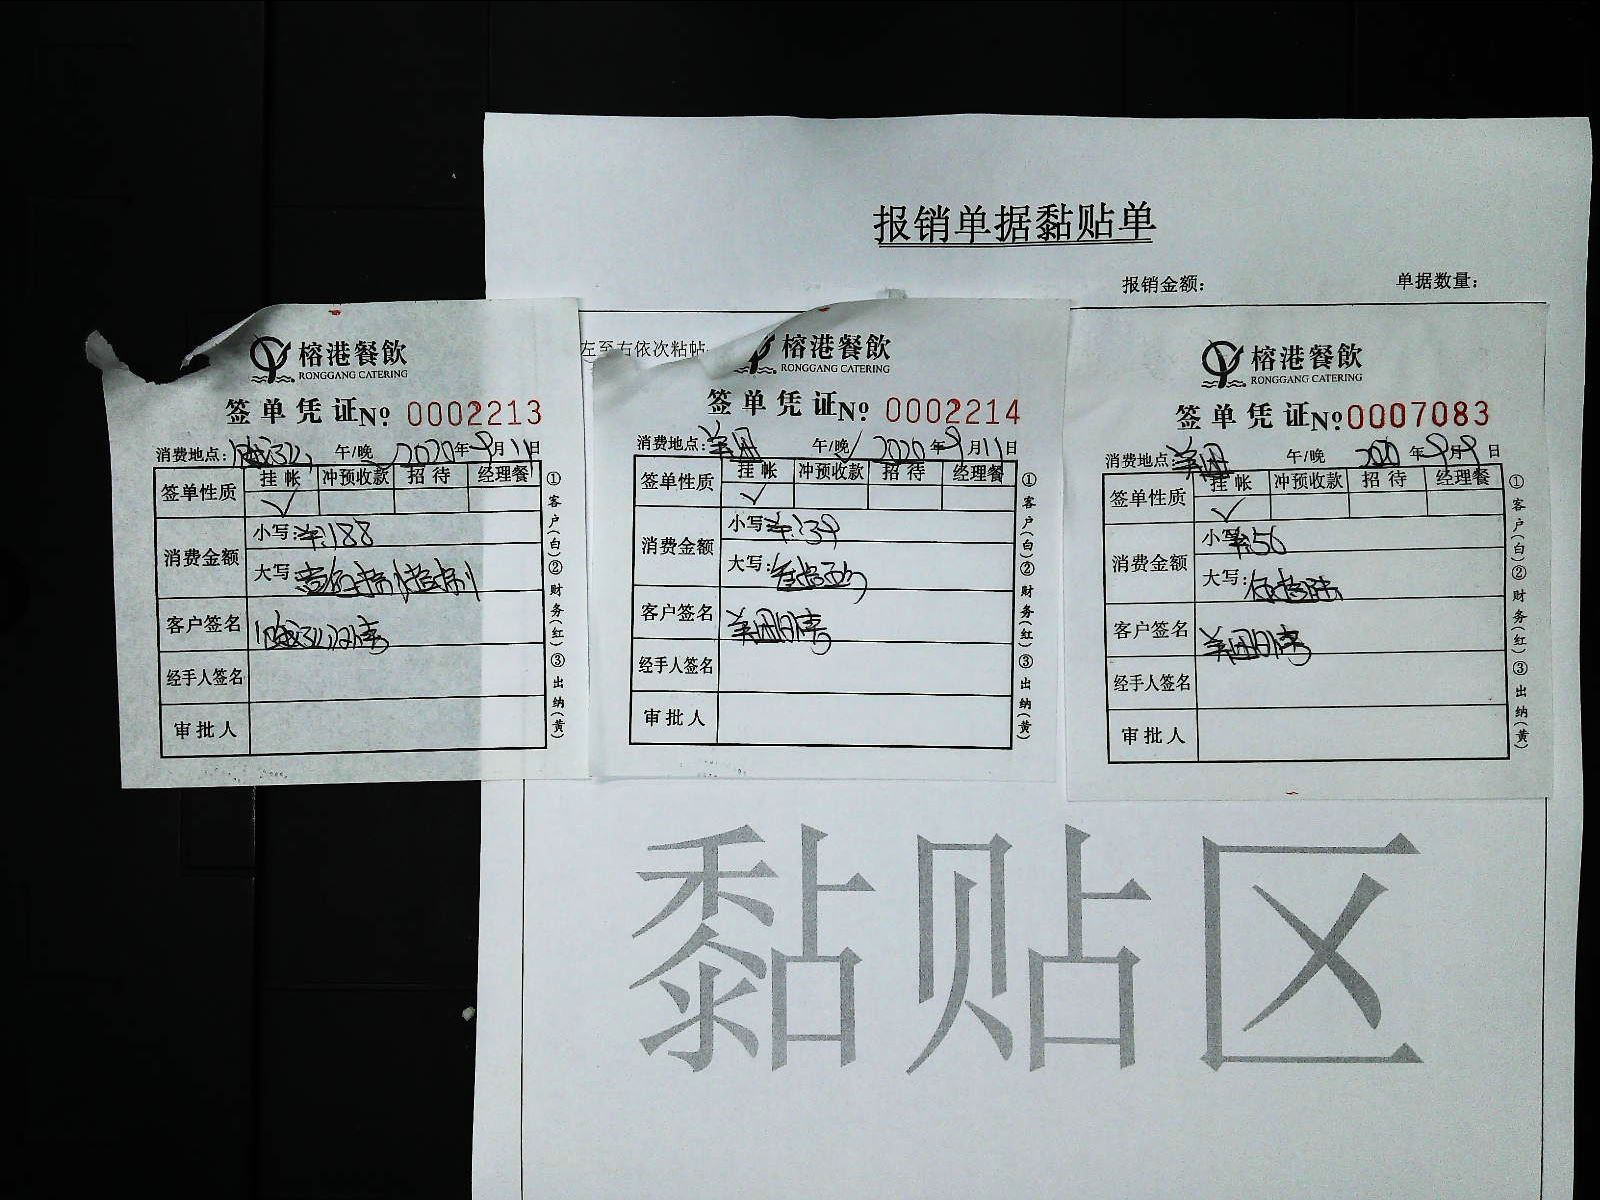 报销单据黏贴单
报销金额：
单据数量：
左至右依次粘帖
榕港餐飲
RONGGANG CATERING
签单凭证№ 0002213
消费地点： 午/晚 2020年9月11日
签单性质 挂帐 冲预收款 招待 经理餐
✓
消费金额 小写：¥188
大写：壹佰捌拾捌
客户签名
经手人签名
审批人
①客户(白)②财务(红)③出纳(黄)
榕港餐飲
RONGGANG CATERING
签单凭证№ 0002214
消费地点： 午/晚 2020年9月11日
签单性质 挂帐 冲预收款 招待 经理餐
✓
消费金额 小写：
大写：
客户签名
经手人签名
审批人
①客户(白)②财务(红)③出纳(黄)
榕港餐飲
RONGGANG CATERING
签单凭证№ 0007083
消费地点： 午/晚 2020年9月9日
签单性质 挂帐 冲预收款 招待 经理餐
✓
消费金额 小写：¥56
大写：伍拾陆
客户签名
经手人签名
审批人
①客户(白)②财务(红)③出纳(黄)
黏贴区